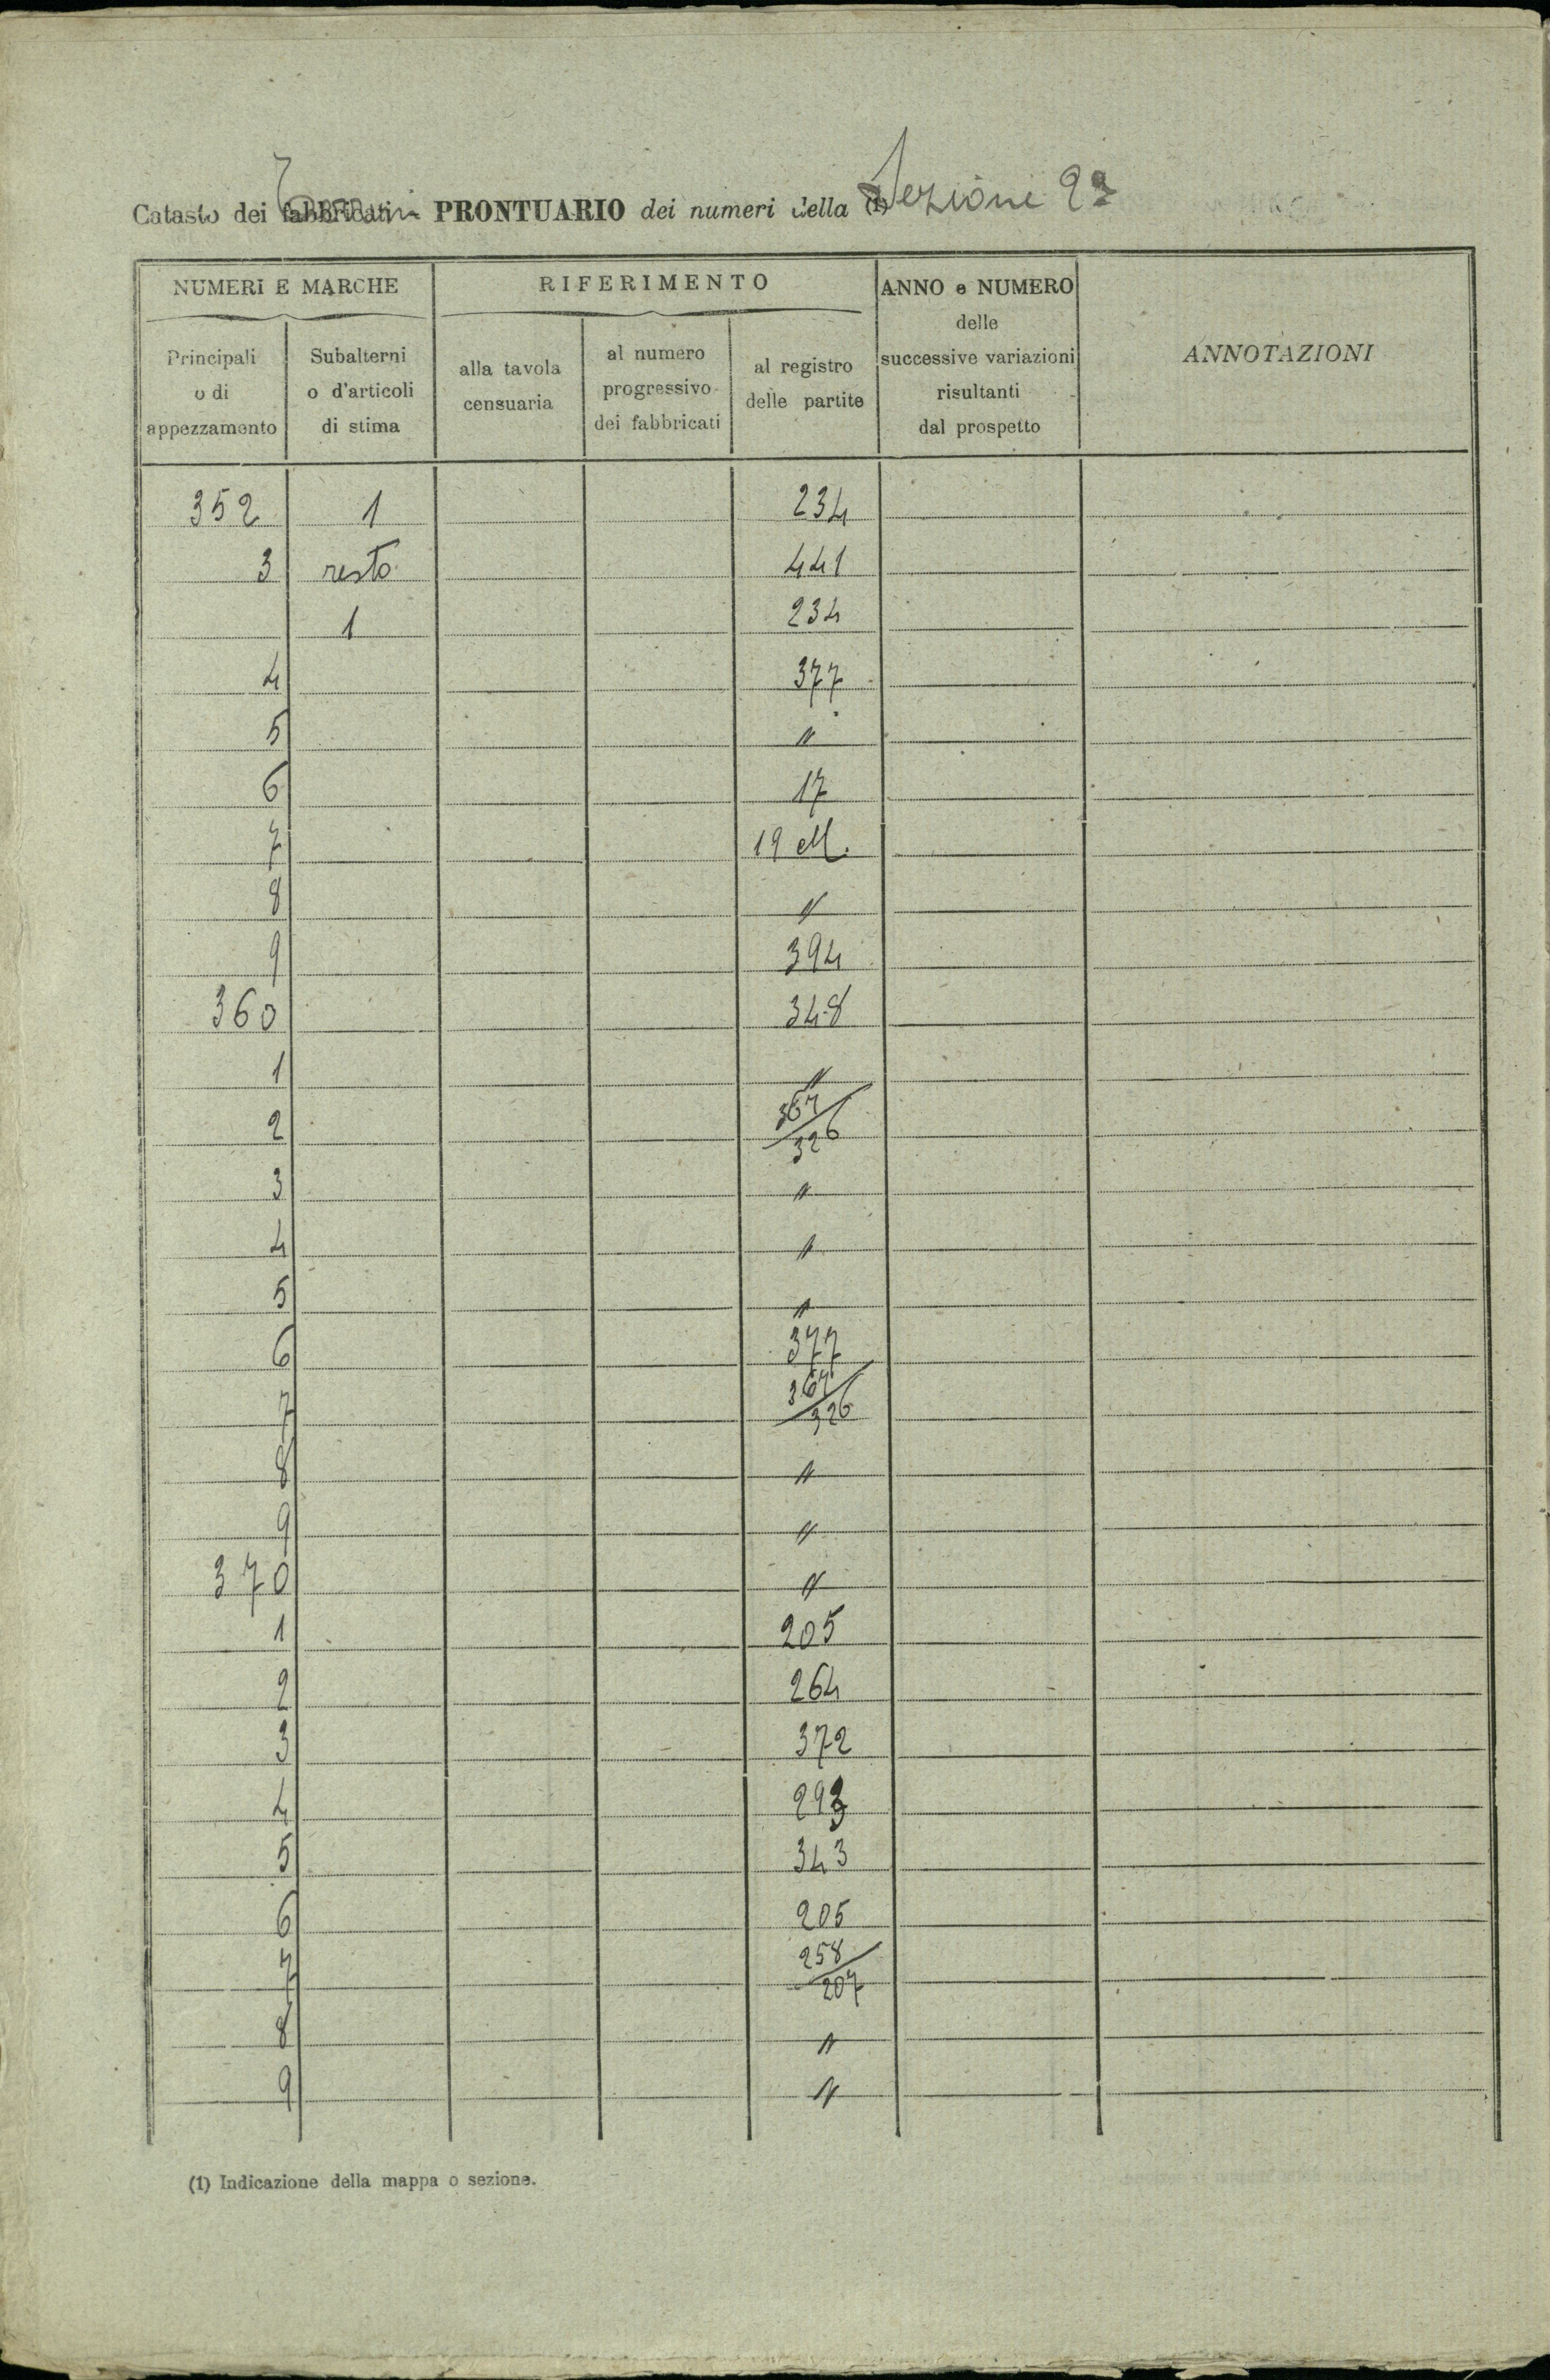 Catasto dei fabbricati Terreni - PRONTUARIO dei numeri della (1) Sezione 2ª
NUMERI E MARCHE
RIFERIMENTO
ANNO e NUMERO
delle
successive variazioni
risultanti
dal prospetto
ANNOTAZIONI
Principali
o di
appezzamento
Subalterni
o d'articoli
di stima
alla tavola
censuaria
al numero
progressivo
dei fabbricati
al registro
delle partite
352 1 234
3 resto 441
1 234
4 377
5 "
6 17
7 19 M.
8 "
9 394
360 348
1 "
2 367/326
3 "
4 "
5 "
6 377
7 367/326
8 "
9 "
370 "
1 205
2 264
3 372
4 293
5 343
6 205
7 258/207
8 "
9 "
(1) Indicazione della mappa o sezione.